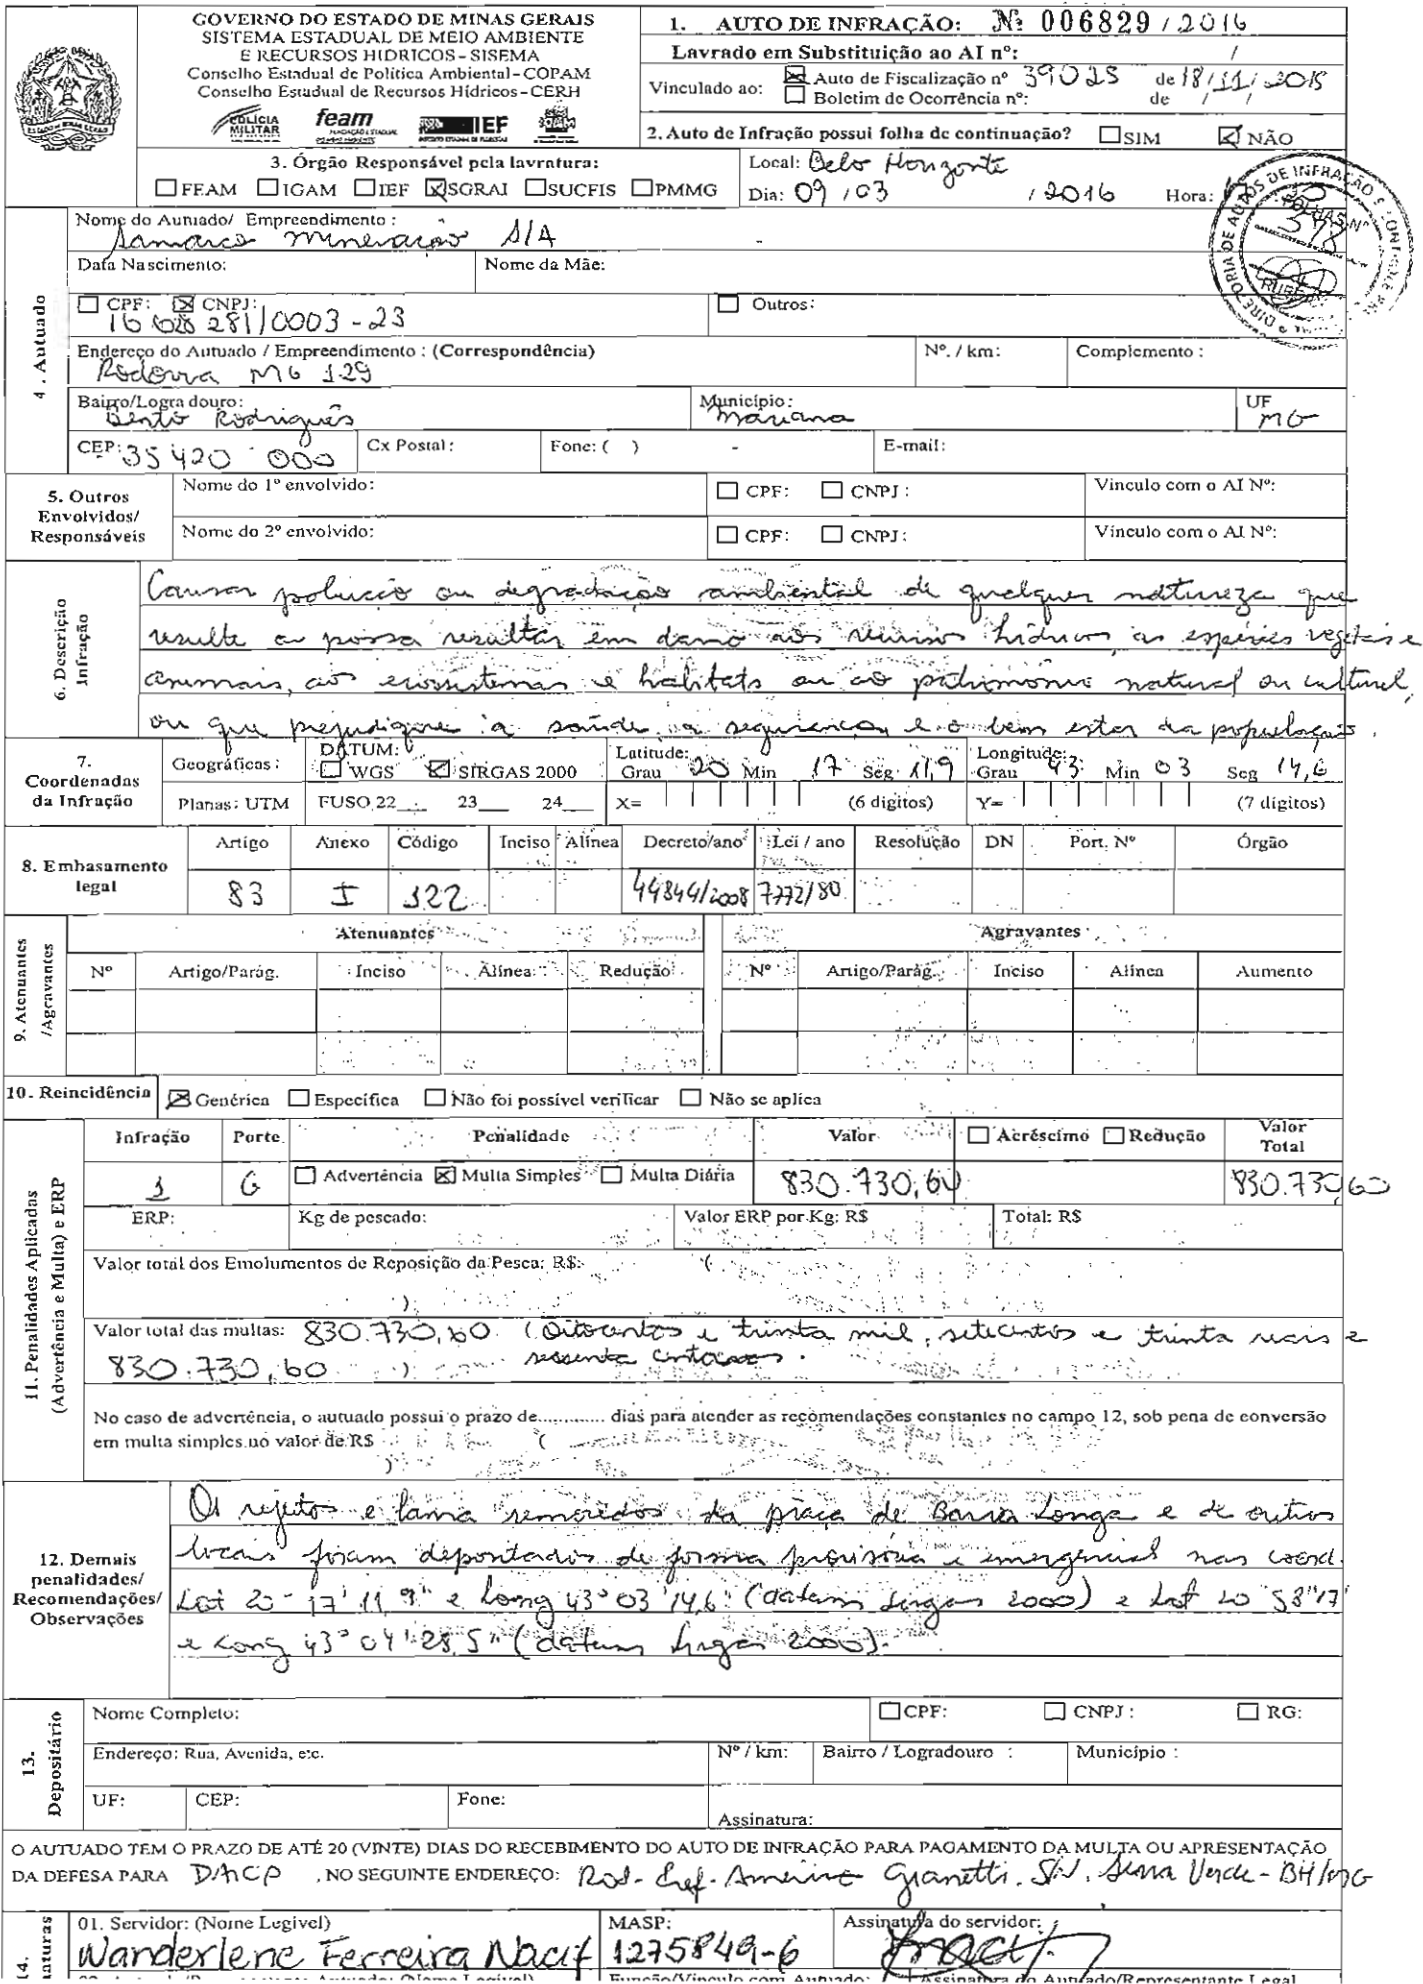 GOVERNO DO ESTADO DE MINAS GERAIS
SISTEMA ESTADUAL DE MEIO AMBIENTE
E RECURSOS HIDRICOS - SISEMA
Conselho Estadual de Política Ambiental - COPAM
Conselho Estadual de Recursos Hídricos - CERH
POLÍCIA MILITAR feam IEF IGAM
1. AUTO DE INFRAÇÃO: Nº 006829 / 2016
Lavrado em Substituição ao AI nº: /
Vinculado ao: Auto de Fiscalização nº 39025 de 18/11/2015
Boletim de Ocorrência nº: de / /
2. Auto de Infração possui folha de continuação? SIM NÃO
3. Órgão Responsável pela lavratura:
FEAM IGAM IEF SGRAI SUCFIS PMMG
Local: Belo Horizonte
Dia: 09 / 03 / 2016 Hora:
DIRETORIA DE AUTOS DE INFRAÇÃO E CONTROLE
FOLHAS Nº
378
RUBRICA
4. Autuado
Nome do Autuado/ Empreendimento:
Samarco Mineração S/A
Data Nascimento: Nome da Mãe:
CPF: CNPJ: Outros:
16 628 281/0003-23
Endereço do Autuado / Empreendimento: (Correspondência) Nº. / km: Complemento:
Rodovia MG 129
Bairro/Logradouro: Município: UF
Bento Rodrigues Mariana MG
CEP: 35 420 000 Cx Postal: Fone: ( ) - E-mail:
5. Outros Envolvidos/ Responsáveis
Nome do 1º envolvido: CPF: CNPJ: Vinculo com o AI Nº:
Nome do 2º envolvido: CPF: CNPJ: Vinculo com o AI Nº:
6. Descrição Infração
Causar poluição ou degradação ambiental de qualquer natureza que
resulte ou possa resultar em dano aos recursos hídricos, às espécies vegetais e
animais, aos ecossistemas e habitats ou ao patrimônio natural ou cultural,
ou que prejudique a saúde, a segurança, e o bem estar da população.
7. Coordenadas da Infração
Geográficas: DATUM: WGS SIRGAS 2000 Latitude: Grau 20 Min 17 Seg 11,9 Longitude: Grau 43 Min 03 Seg 14,6
Planas: UTM FUSO 22 23 24 X= (6 dígitos) Y= (7 dígitos)
8. Embasamento legal
Artigo Anexo Código Inciso Alínea Decreto/ano Lei / ano Resolução DN Port. Nº Órgão
83 I 122 44844/2008 7772/80
9. Atenuantes /Agravantes
Atenuantes Agravantes
Nº Artigo/Parág. Inciso Alínea Redução Nº Artigo/Parág. Inciso Alínea Aumento
10. Reincidência Genérica Específica Não foi possível verificar Não se aplica
11. Penalidades Aplicadas (Advertência e Multa) e ERP
Infração Porte Penalidade Valor Acréscimo Redução Valor Total
1 G Advertência Multa Simples Multa Diária 830.730,60 830.730,60
ERP: Kg de pescado: Valor ERP por Kg: R$ Total: R$
Valor total dos Emolumentos de Reposição da Pesca: R$: (
)
Valor total das multas: 830.730,60 (Oitocentos e trinta mil, setecentos e trinta reais e
830.730,60 ) sessenta centavos.
No caso de advertência, o autuado possui o prazo de............ dias para atender as recomendações constantes no campo 12, sob pena de conversão
em multa simples no valor de R$ (
)
12. Demais penalidades/ Recomendações/ Observações
Os rejeitos e lama removidos da praça de Barra Longa e de outros
locais foram depositados de forma provisória e emergencial nas coord.
Lat 20° 17' 11,9" e Long 43° 03' 14,6" (datum Sirgas 2000) e Lat 20 58"17'
e Long 43° 04' 28,5" (datum Sirgas 2000).
13. Depositário
Nome Completo: CPF: CNPJ: RG:
Endereço: Rua, Avenida, etc. Nº / km: Bairro / Logradouro : Município :
UF: CEP: Fone: Assinatura:
O AUTUADO TEM O PRAZO DE ATÉ 20 (VINTE) DIAS DO RECEBIMENTO DO AUTO DE INFRAÇÃO PARA PAGAMENTO DA MULTA OU APRESENTAÇÃO
DA DEFESA PARA DAICP , NO SEGUINTE ENDEREÇO: Rod. Pref. Américo Gianetti. S/N. Serra Verde - BH/MG
14.
01. Servidor: (Nome Legível) MASP: Assinatura do servidor:
Wanderlene Ferreira Nacif 1275849-6
Função/Vínculo com Autuado: Assinatura do Autuado/Representante Legal